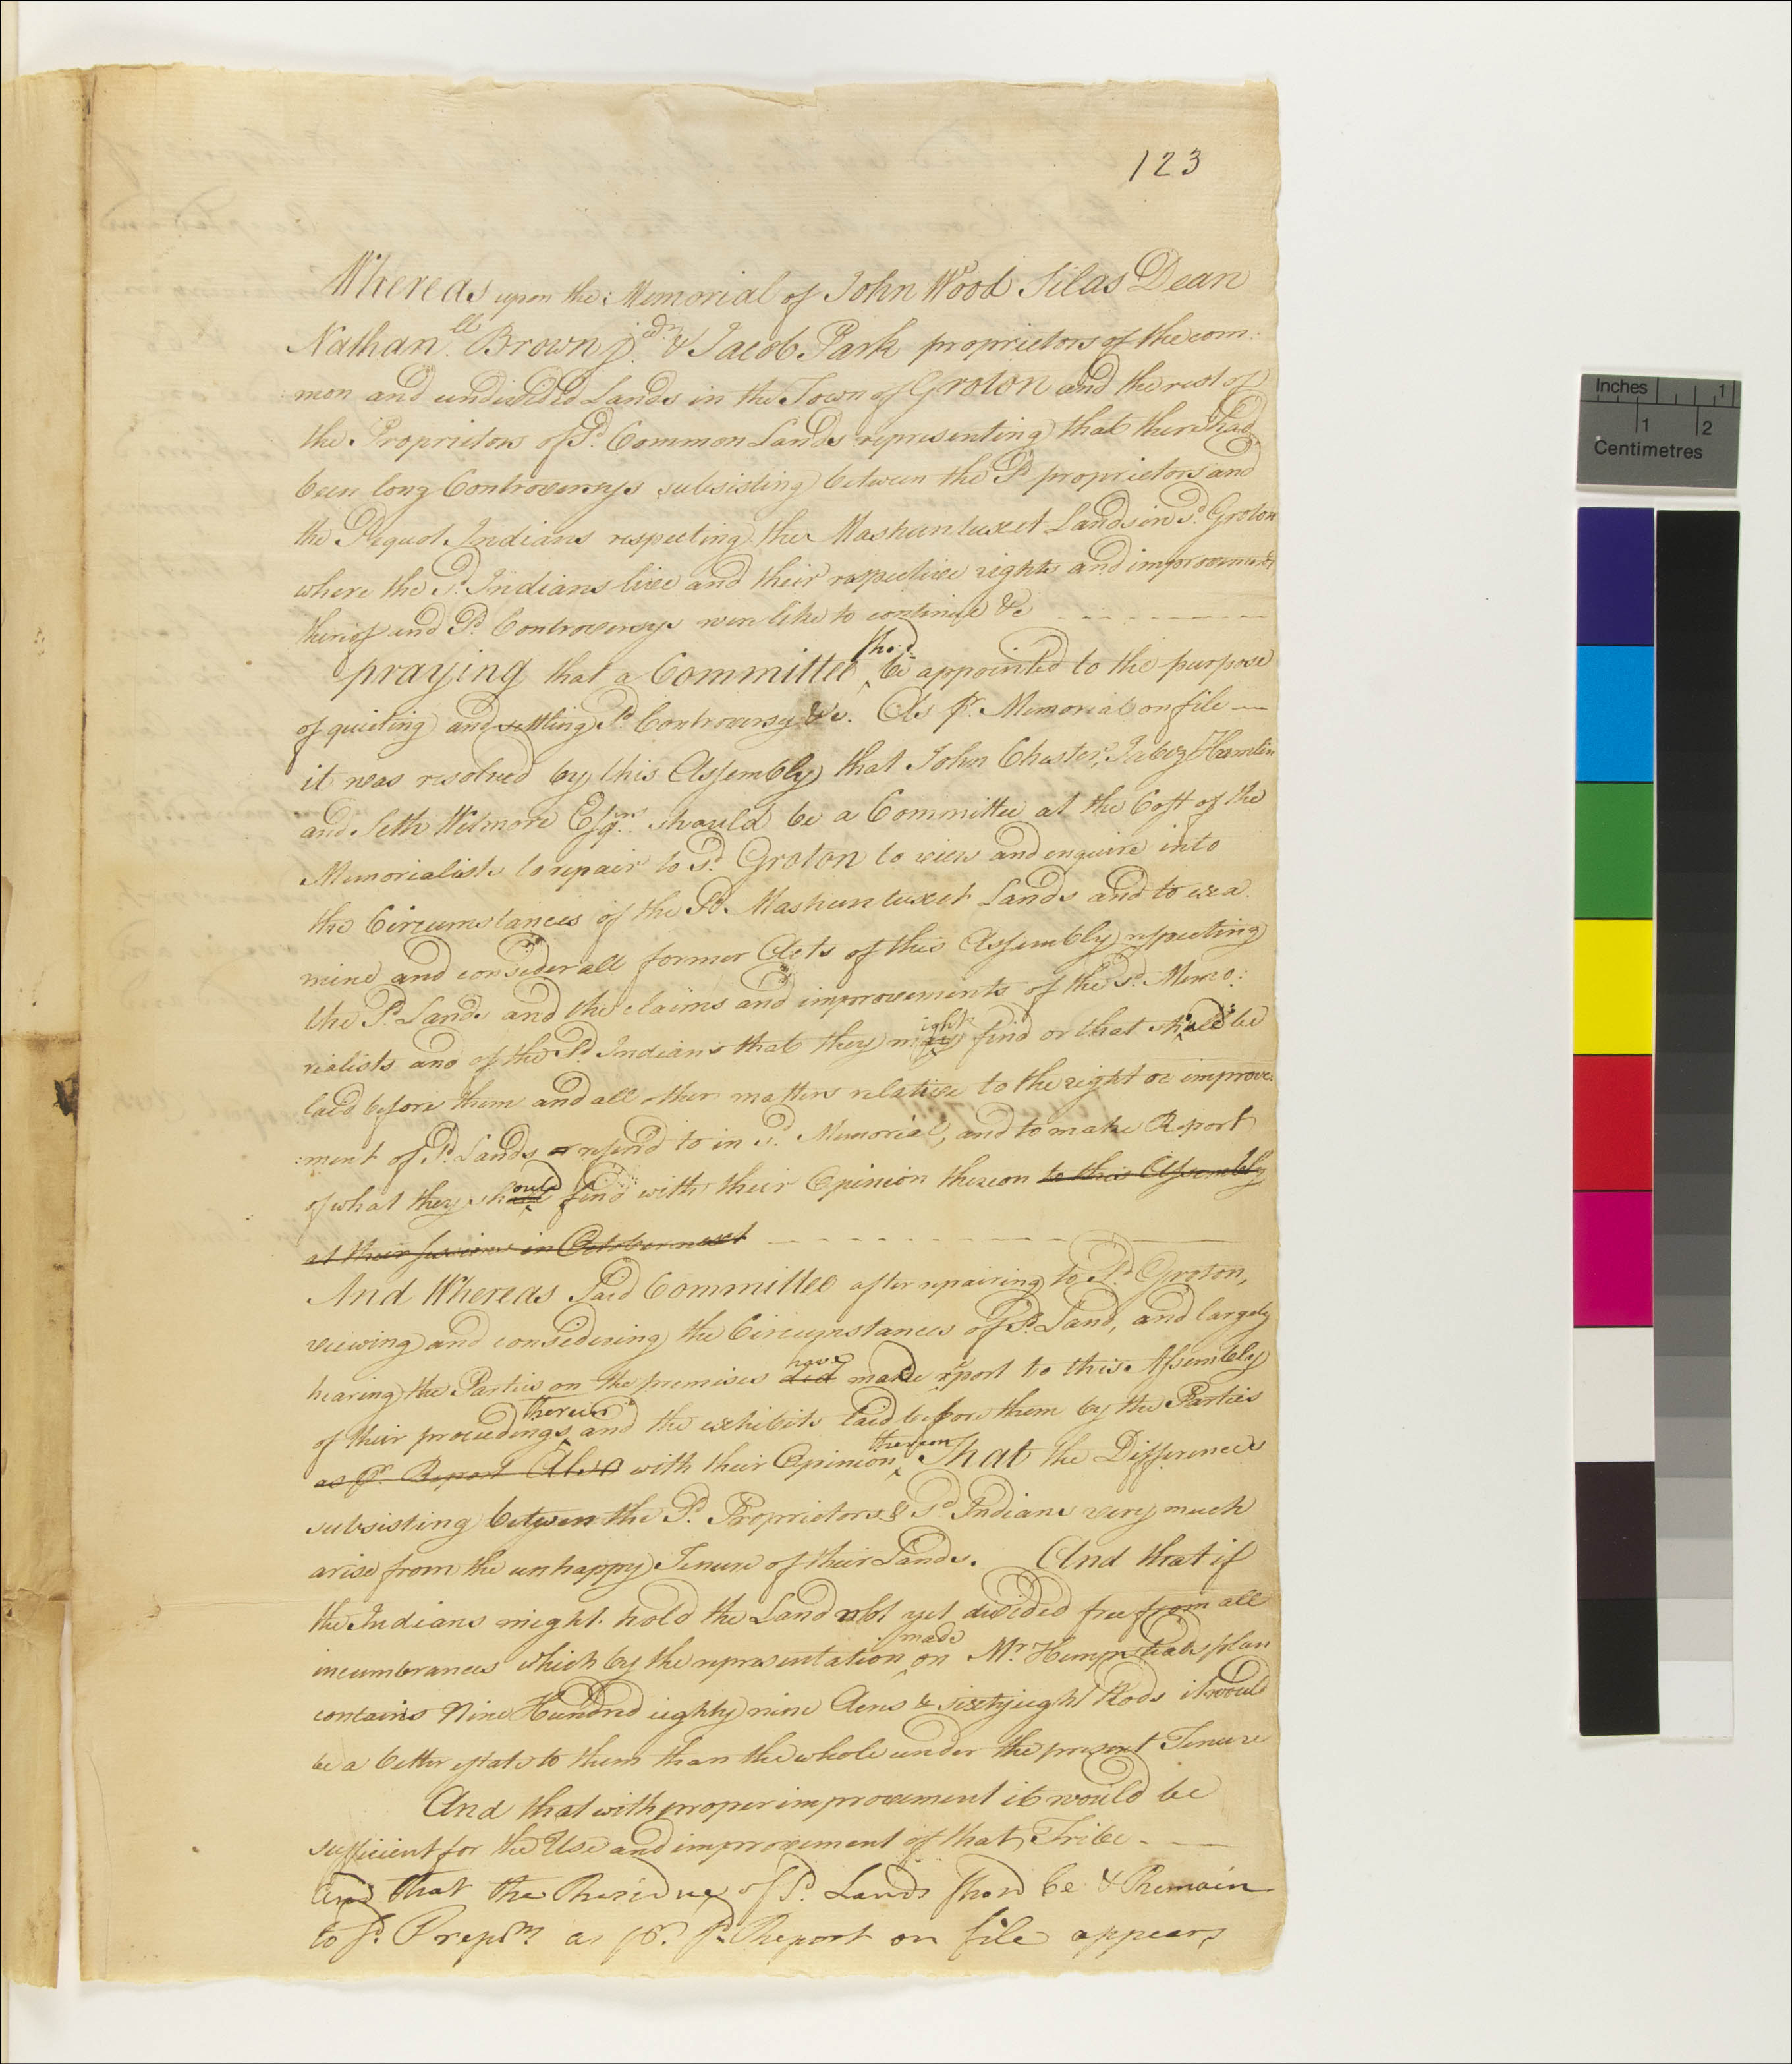 123
Whereas upon the Memorial of John Wood Silas Dean
Nathan.ll Brown & Jacob Park proprietors of the com:
:mon and undivided Lands in the Town of Groton and the rest of
the Proprietors of Sd. Common Lands representing that there had
been long Controversys subsisting between the Sd proprietors and
the Pequot Indians respecting the Mashuntuxet Lands in Sd. Groton
where the Sd. Indians live and their respective rights and improvements
thereof and Sd. Controversys were like to continue &c
praying that a Committee shod. be appointed to the purpose
of quieting and settling Sd. Controversy &c. As pr. Memorial on file —
it was resolved by this Assembly that John Chester, Jabez Hamlin
and Seth Wetmore Esqrs. should be a Committee at the Cost of the
Memorialists to repair to Sd. Groton to view and enquire into
the Circumstances of the Sd. Mashuntuxet Lands and to exa
mine and consider all former Acts of this Assembly respecting
the Sd. Lands and the claims and improvements of the Sd. Memo:
rialists and of the Sd. Indians that they might find or that should be
laid before them and all other matters relative to the right or improve
:ment of Sd. Lands refer'd to in Sd. Memorial, and to make Report
of what they should find with their Opinion thereon to this Assembly
at their sessions in October next
And Whereas Said Committee after repairing to Sd. Groton,
viewing and considering the Circumstances of Sd. Land, and largely
hearing the Parties on the premises did have made report to this Assembly
of their proceedings therein and the exhibits laid before them by the Parties
as pr. Report Also with their Opinion thereon That the Differences
subsisting between the Sd. Proprietors & Sd. Indians very much
arise from the unhappy Tenure of their Lands. And that if
the Indians might hold the Land not yet divided free from all
incumbrances which by the representation made on Mr. Hempsteads plan
contains Nine Hundred eighty nine Acres & sixty eight Rods it would
be a better estate to them than the whole under the present Tenure
And that with proper improvement it would be
sufficient for the Use and improvement of that Tribe - —
And that the Residue of Sd. Lands shod be & Remain
to Sd. as pr. Sd. Report on file appears